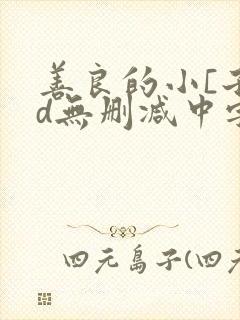 善良的小[
d無删减中
四元島子(四